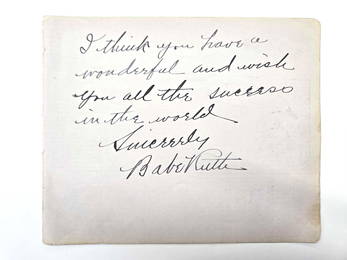 I think you have a
wonderful and wish
you all the success
in the world
Sincerely
Babe Ruth